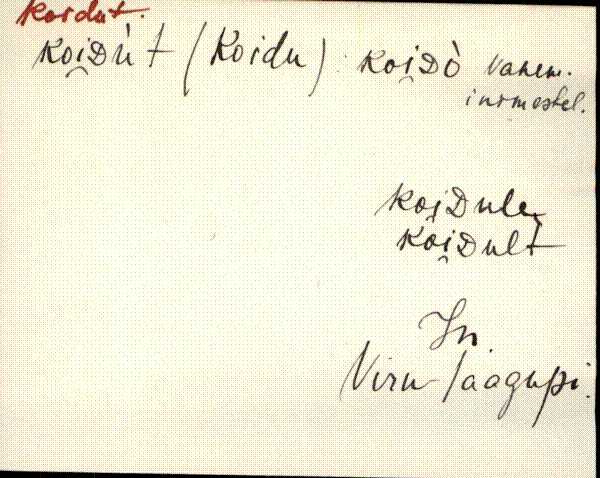 Koidut.
koi̯Dùt (Koidu) : koi̯Dò vanem.
inimestel.
koi̯Dule
koi̯Dult
Jn.
Viru-Jaagupi.